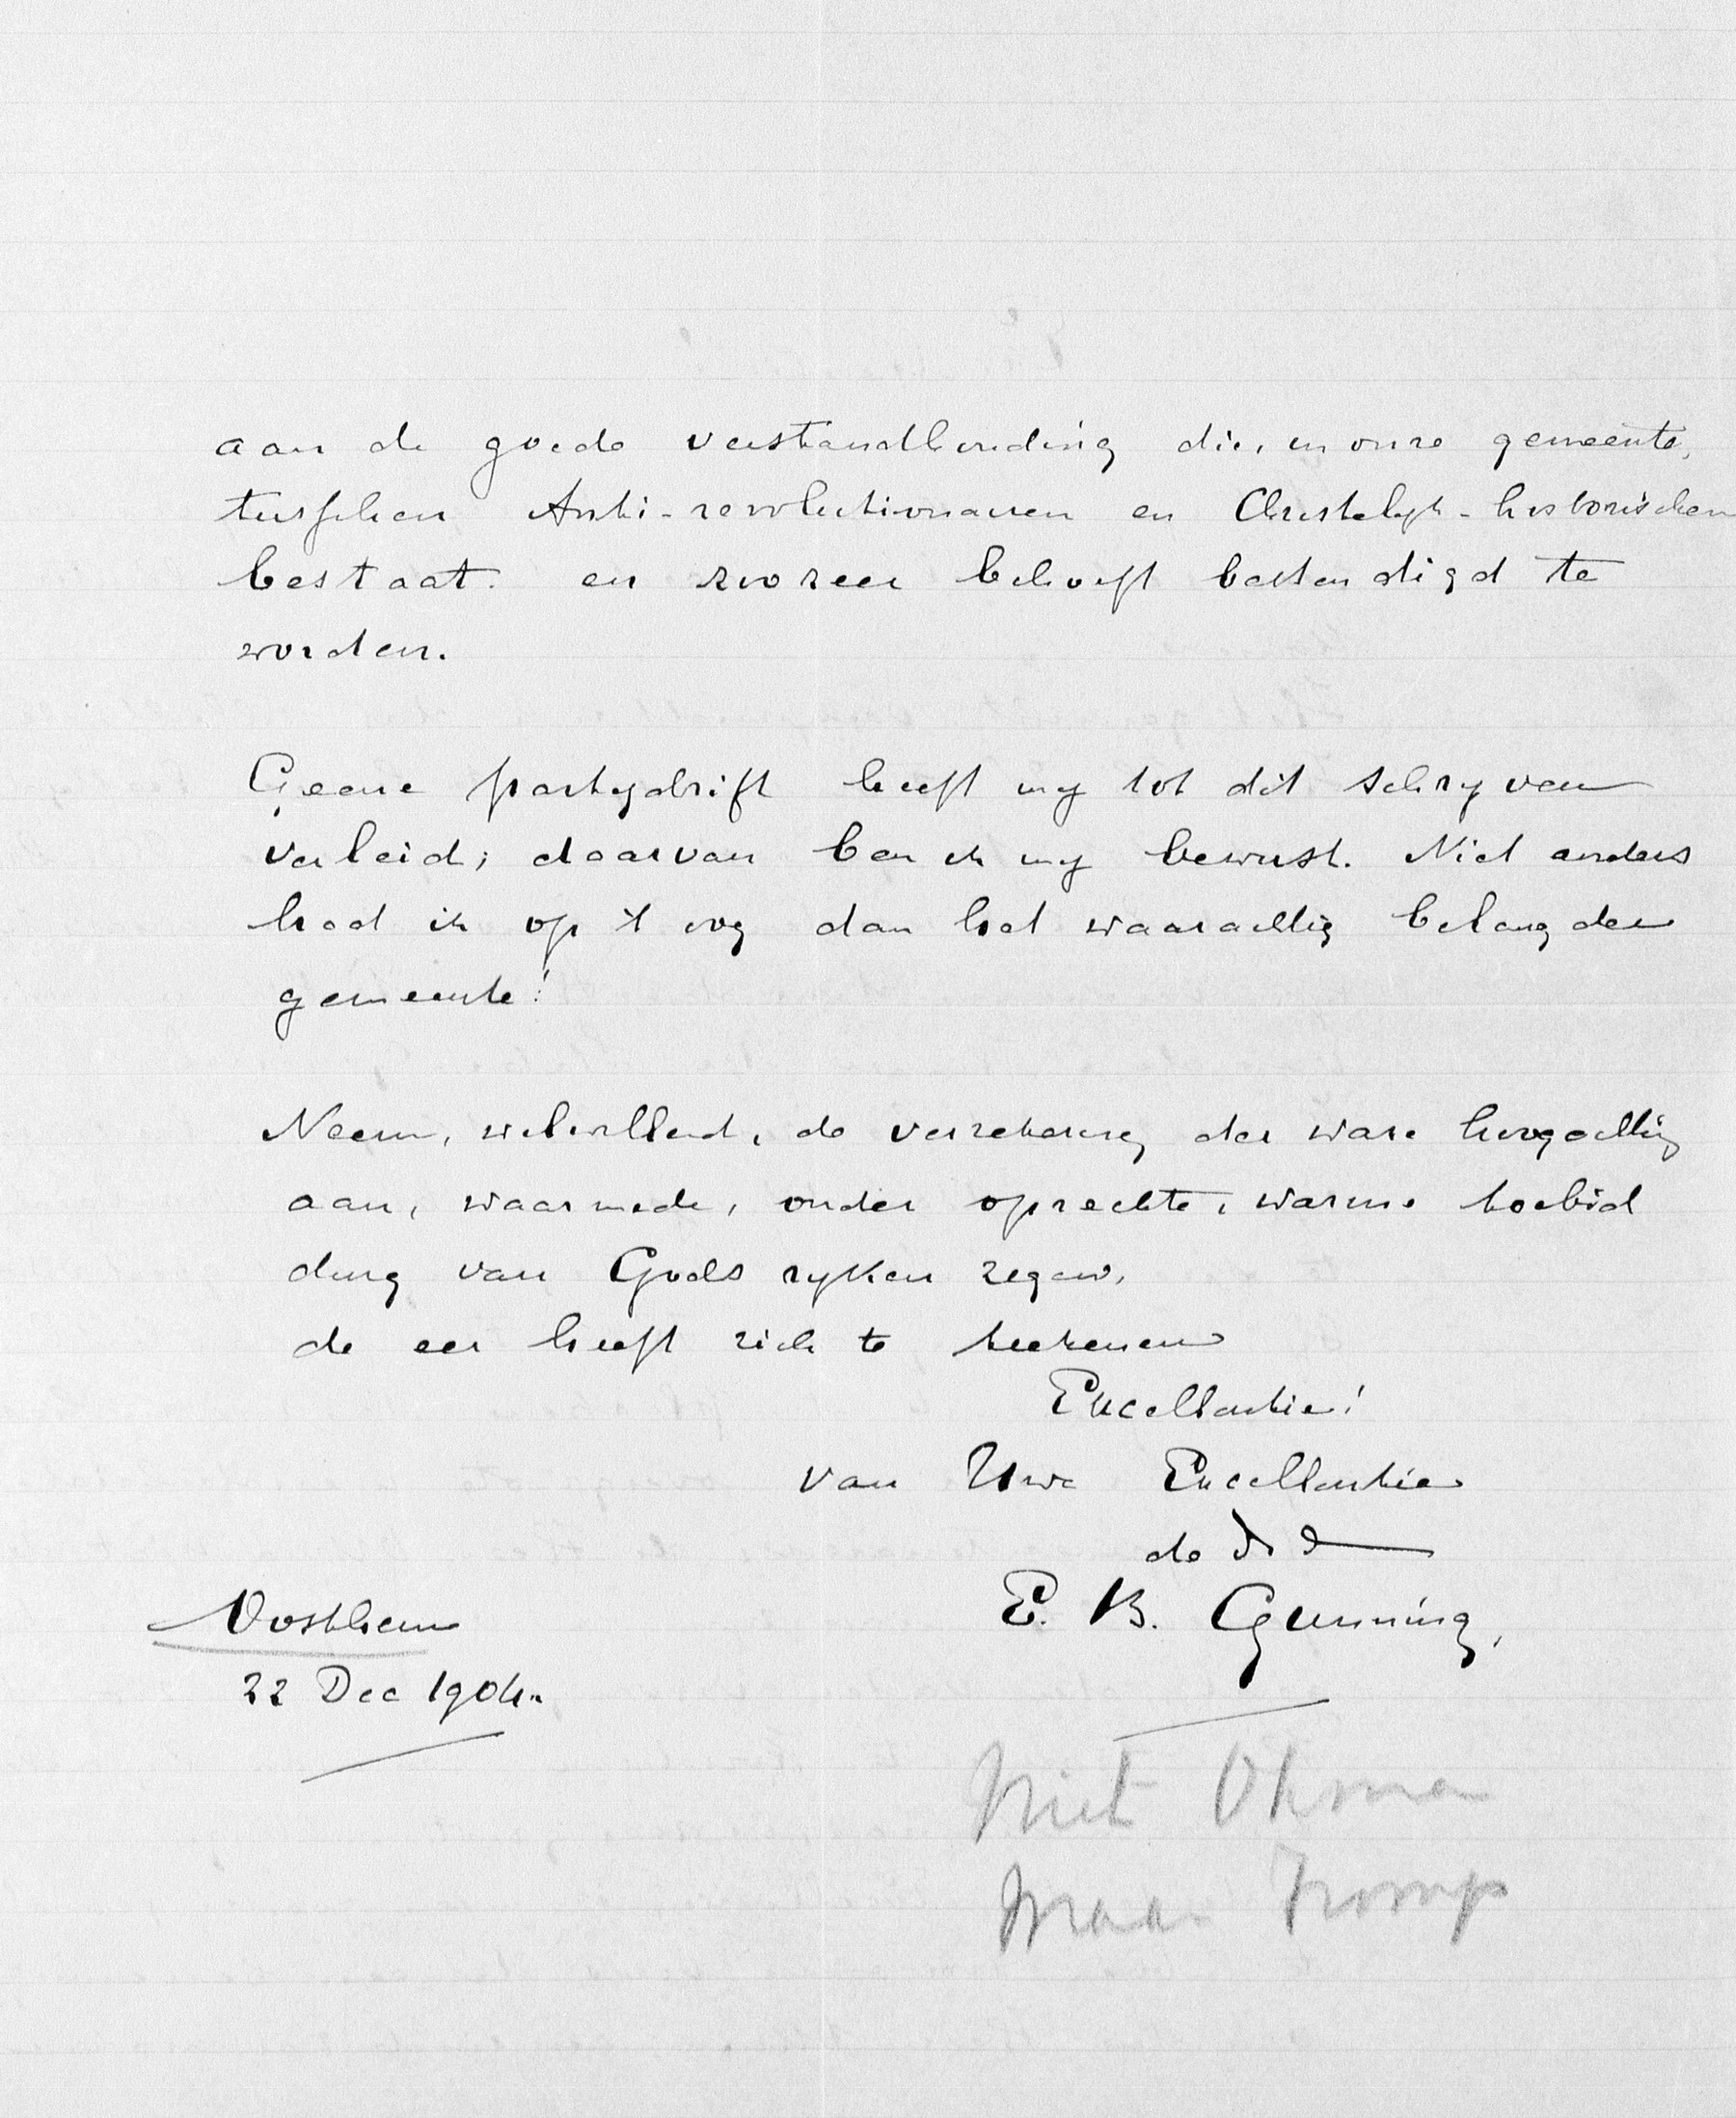 aan de goede verstandhouding die, in onze gemeente,
tusschen Anti-revolutionairen en Christelyk-historischen
bestaat. en zoozeer behoeft bestendigd te
worden.
Geene partydrift heeft my tot dit schryven
verleid; daarvan ben ik my bewust. Niet anders
had ik op 't oog dan het waarachtig belang der
gemeente!
Neem, welwillend, de verzekering der ware hoogachting
aan, waarmede, onder oprechte, warme toebid
ding van Gods ryken zegen,
de eer heeft zich te teekenen
Excellentie!
van Uwe Excellentie
de
E. B. Gunning,
Oosthem
22 Dec 1904.
Niet Okma
Maar Tromp